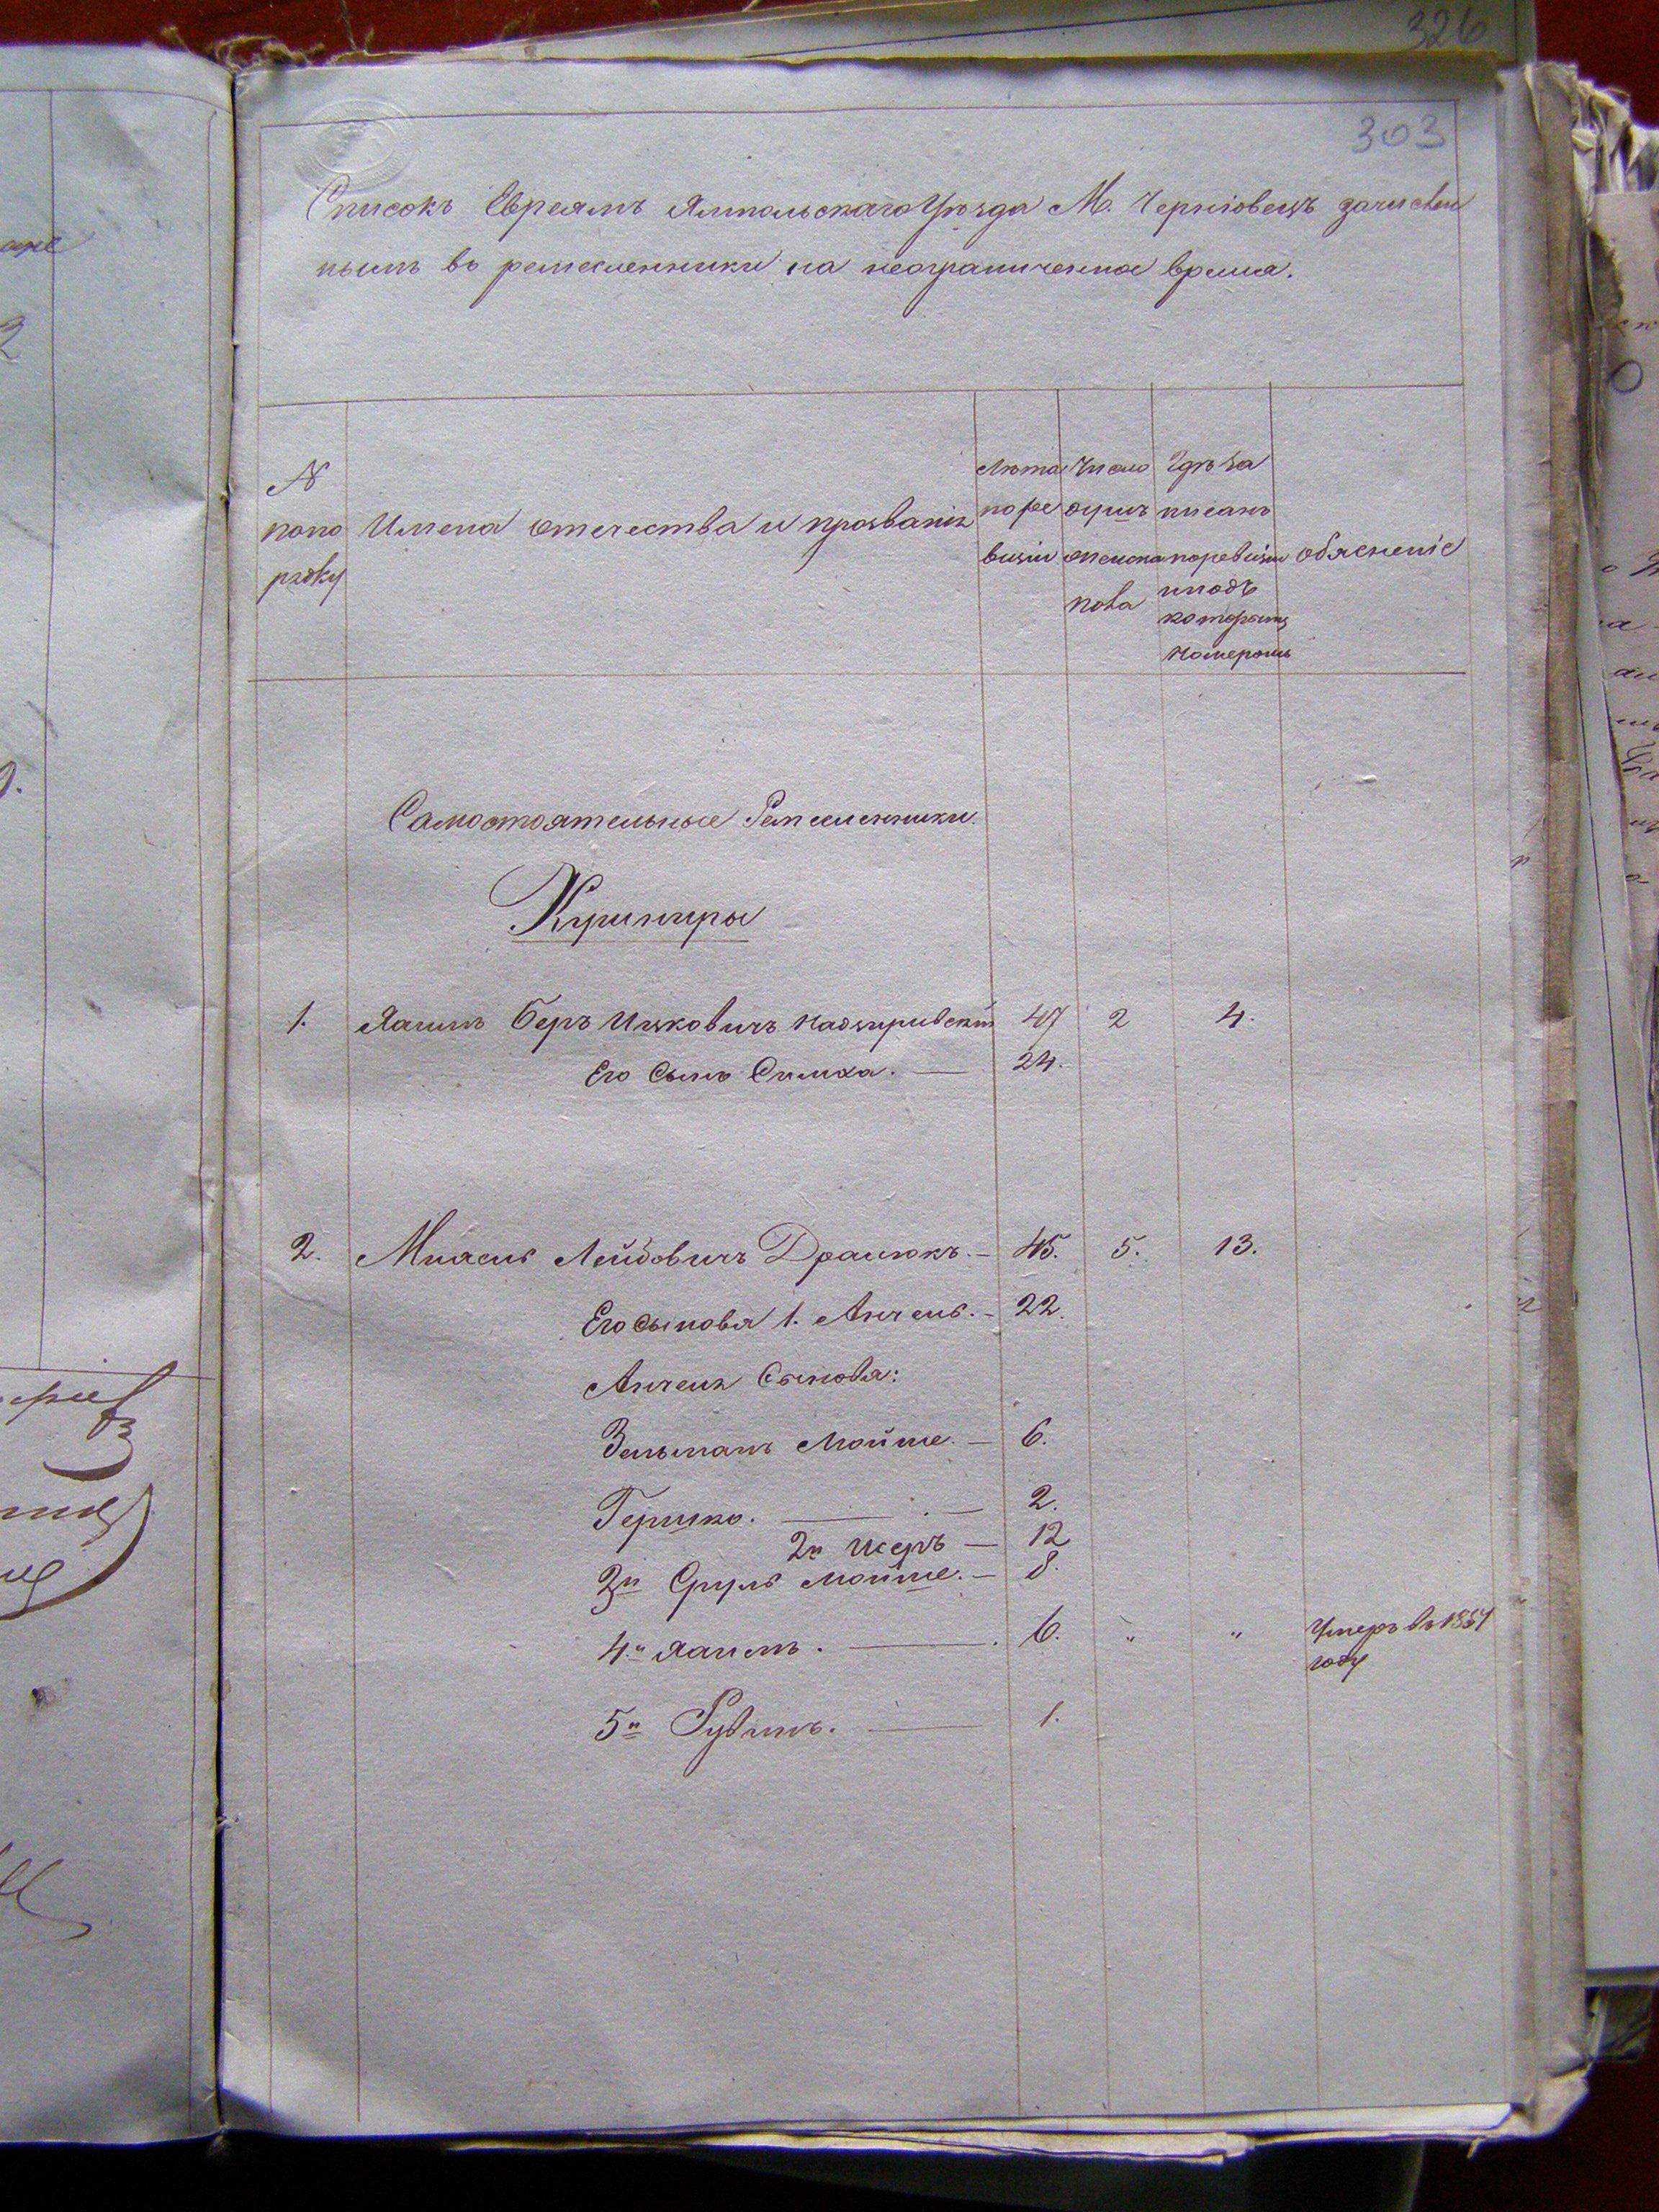 326
303
Списокъ Евреямъ Ямпольскаго Уѣзда М. Черніовецъ зачислен
нымъ въ ремесленники на неограниченное время.
N
попо
рядку
Имена отечества и прозванія
Лѣта
поре
визіи
Число
душъ
мужска
пола
Гдѣ за
писанъ
поревизіи
иподъ
которымъ
номеромъ
обясненіе
Самостоятельные Ремесленники.
Кушниры
1. Хаимъ Беръ Ицковичъ 47 2 4.
Его Сынъ Симха. — 24.
2. Лейбовичъ Дранюкъ. — 45. 5. 13.
Его сыновя 1. Анчель. — 22.
Анчеля Сыновя:
Зельманъ Мойше. — 6.
Гершко. — 2.
2й — 12
3й Сруль Мойше. — 8.
4й Хаимъ. — 6. " " Умеръ въ 1851
году
5й Рувинъ. — 1.